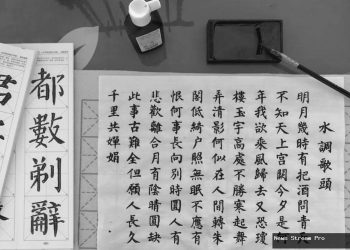 水調歌頭
明月幾時有把酒問青
不知天上宮闕今夕是
年我欲乘風歸去又恐瓊
樓玉宇高處不勝寒起舞
弄清影何似在人間轉朱
閣低綺戶照無眠不應有
恨何事長向別時圓人有
悲歡離合月有陰晴圓缺
此事古難全但願人長久
千里共嬋娟
都數剃辭
News Stream Pro